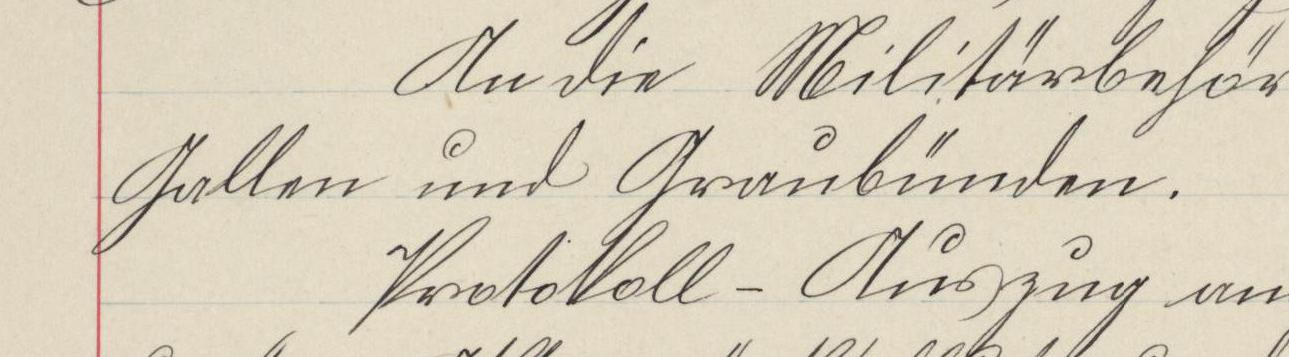 An die Militärbehör
Gallen und Graubünden.
Protokoll - Auszug an